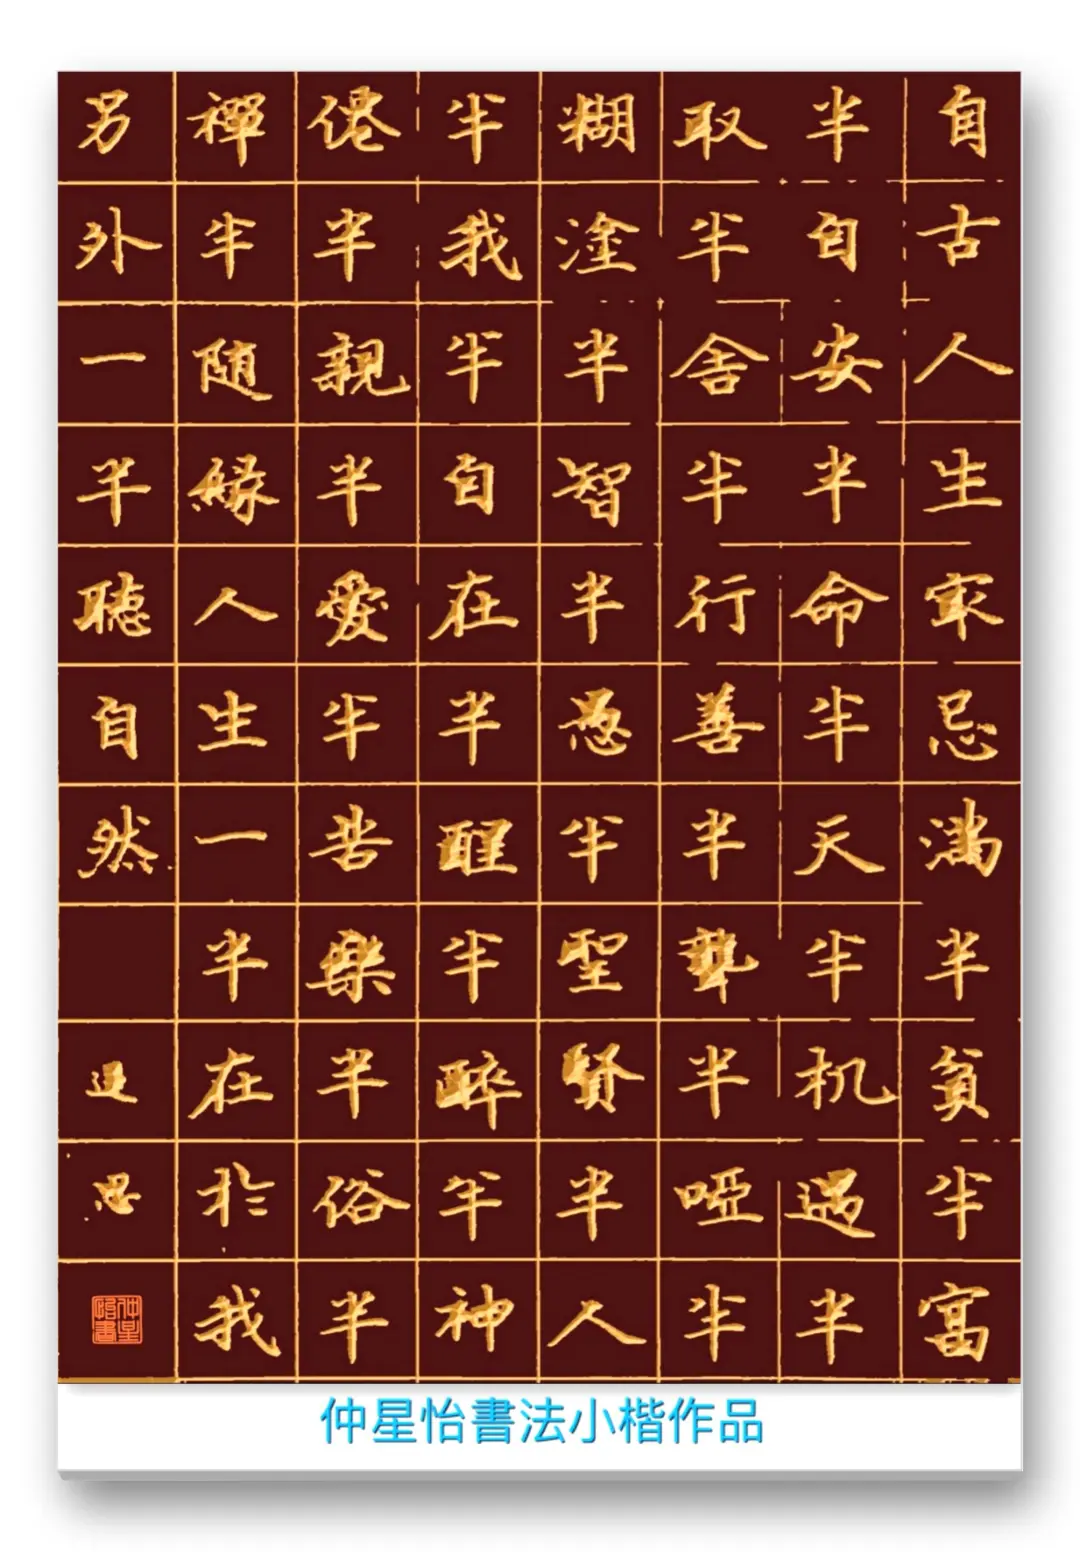 自古人生最忌滿半貧半富
半自安半命半天半机遇半
取半舍半行善半聾半啞半
糊塗半智半愚半聖賢半人
半我半自在半醒半醉半神
僊半親半愛半苦樂半俗半
禪半随緣人生一半在於我
另外一半聽自然
仲星怡書
仲星怡書法小楷作品